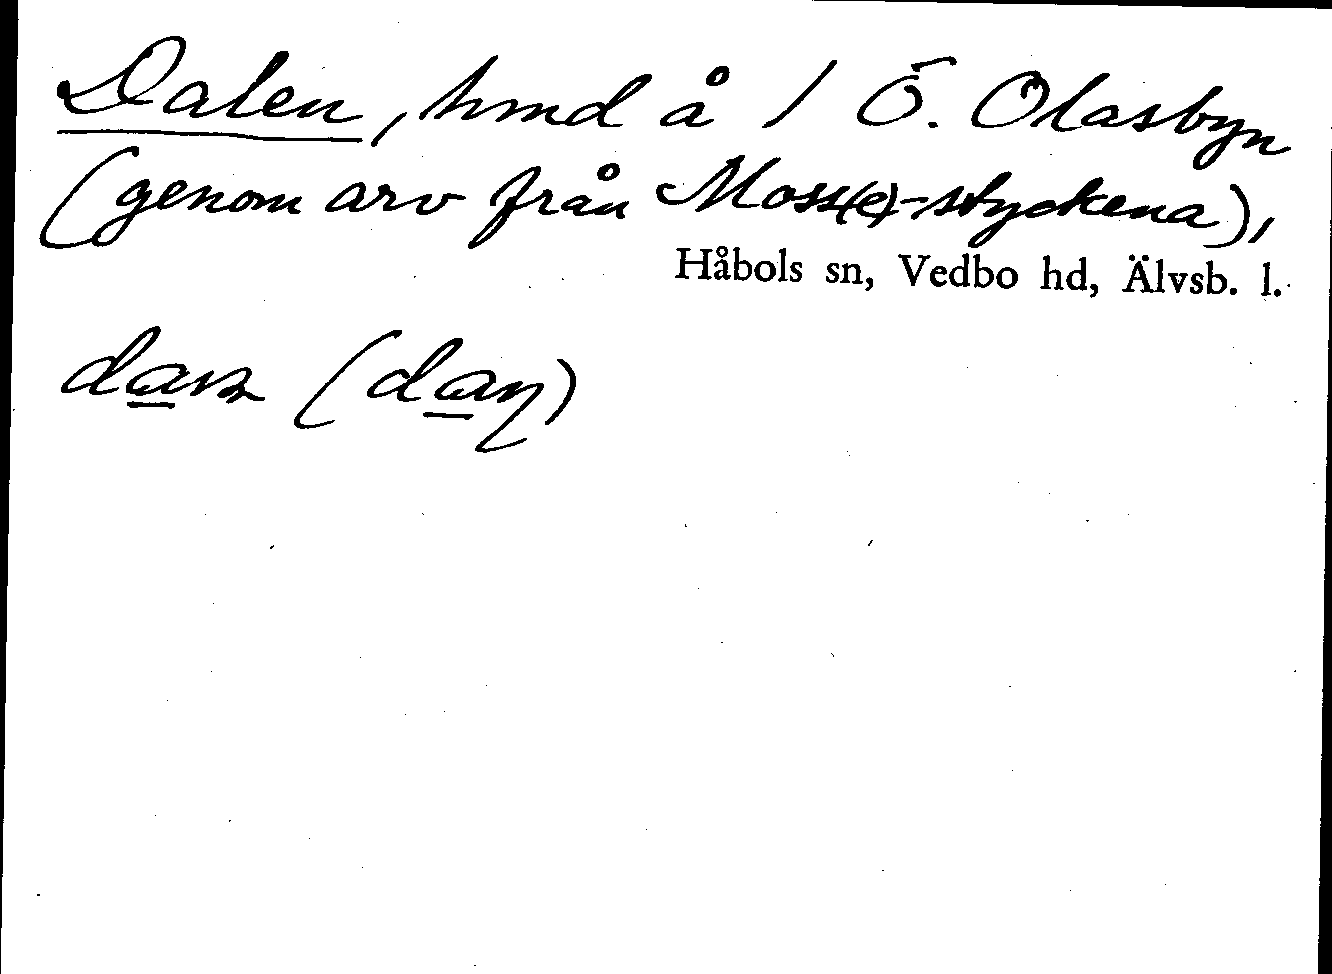 Dalen, hmd å 1 Ö. Olasbyn
(genom arv från Moss(e)-styckena),
Håbols sn, Vedbo hd, Älvsb. l.